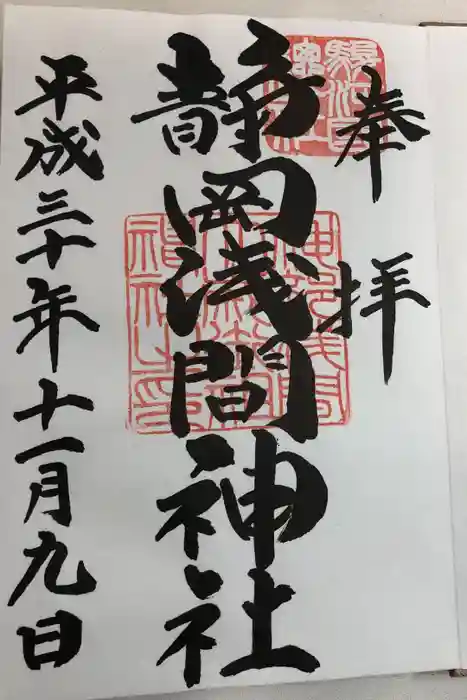 奉拝
静岡浅間神社
平成三十年十一月九日